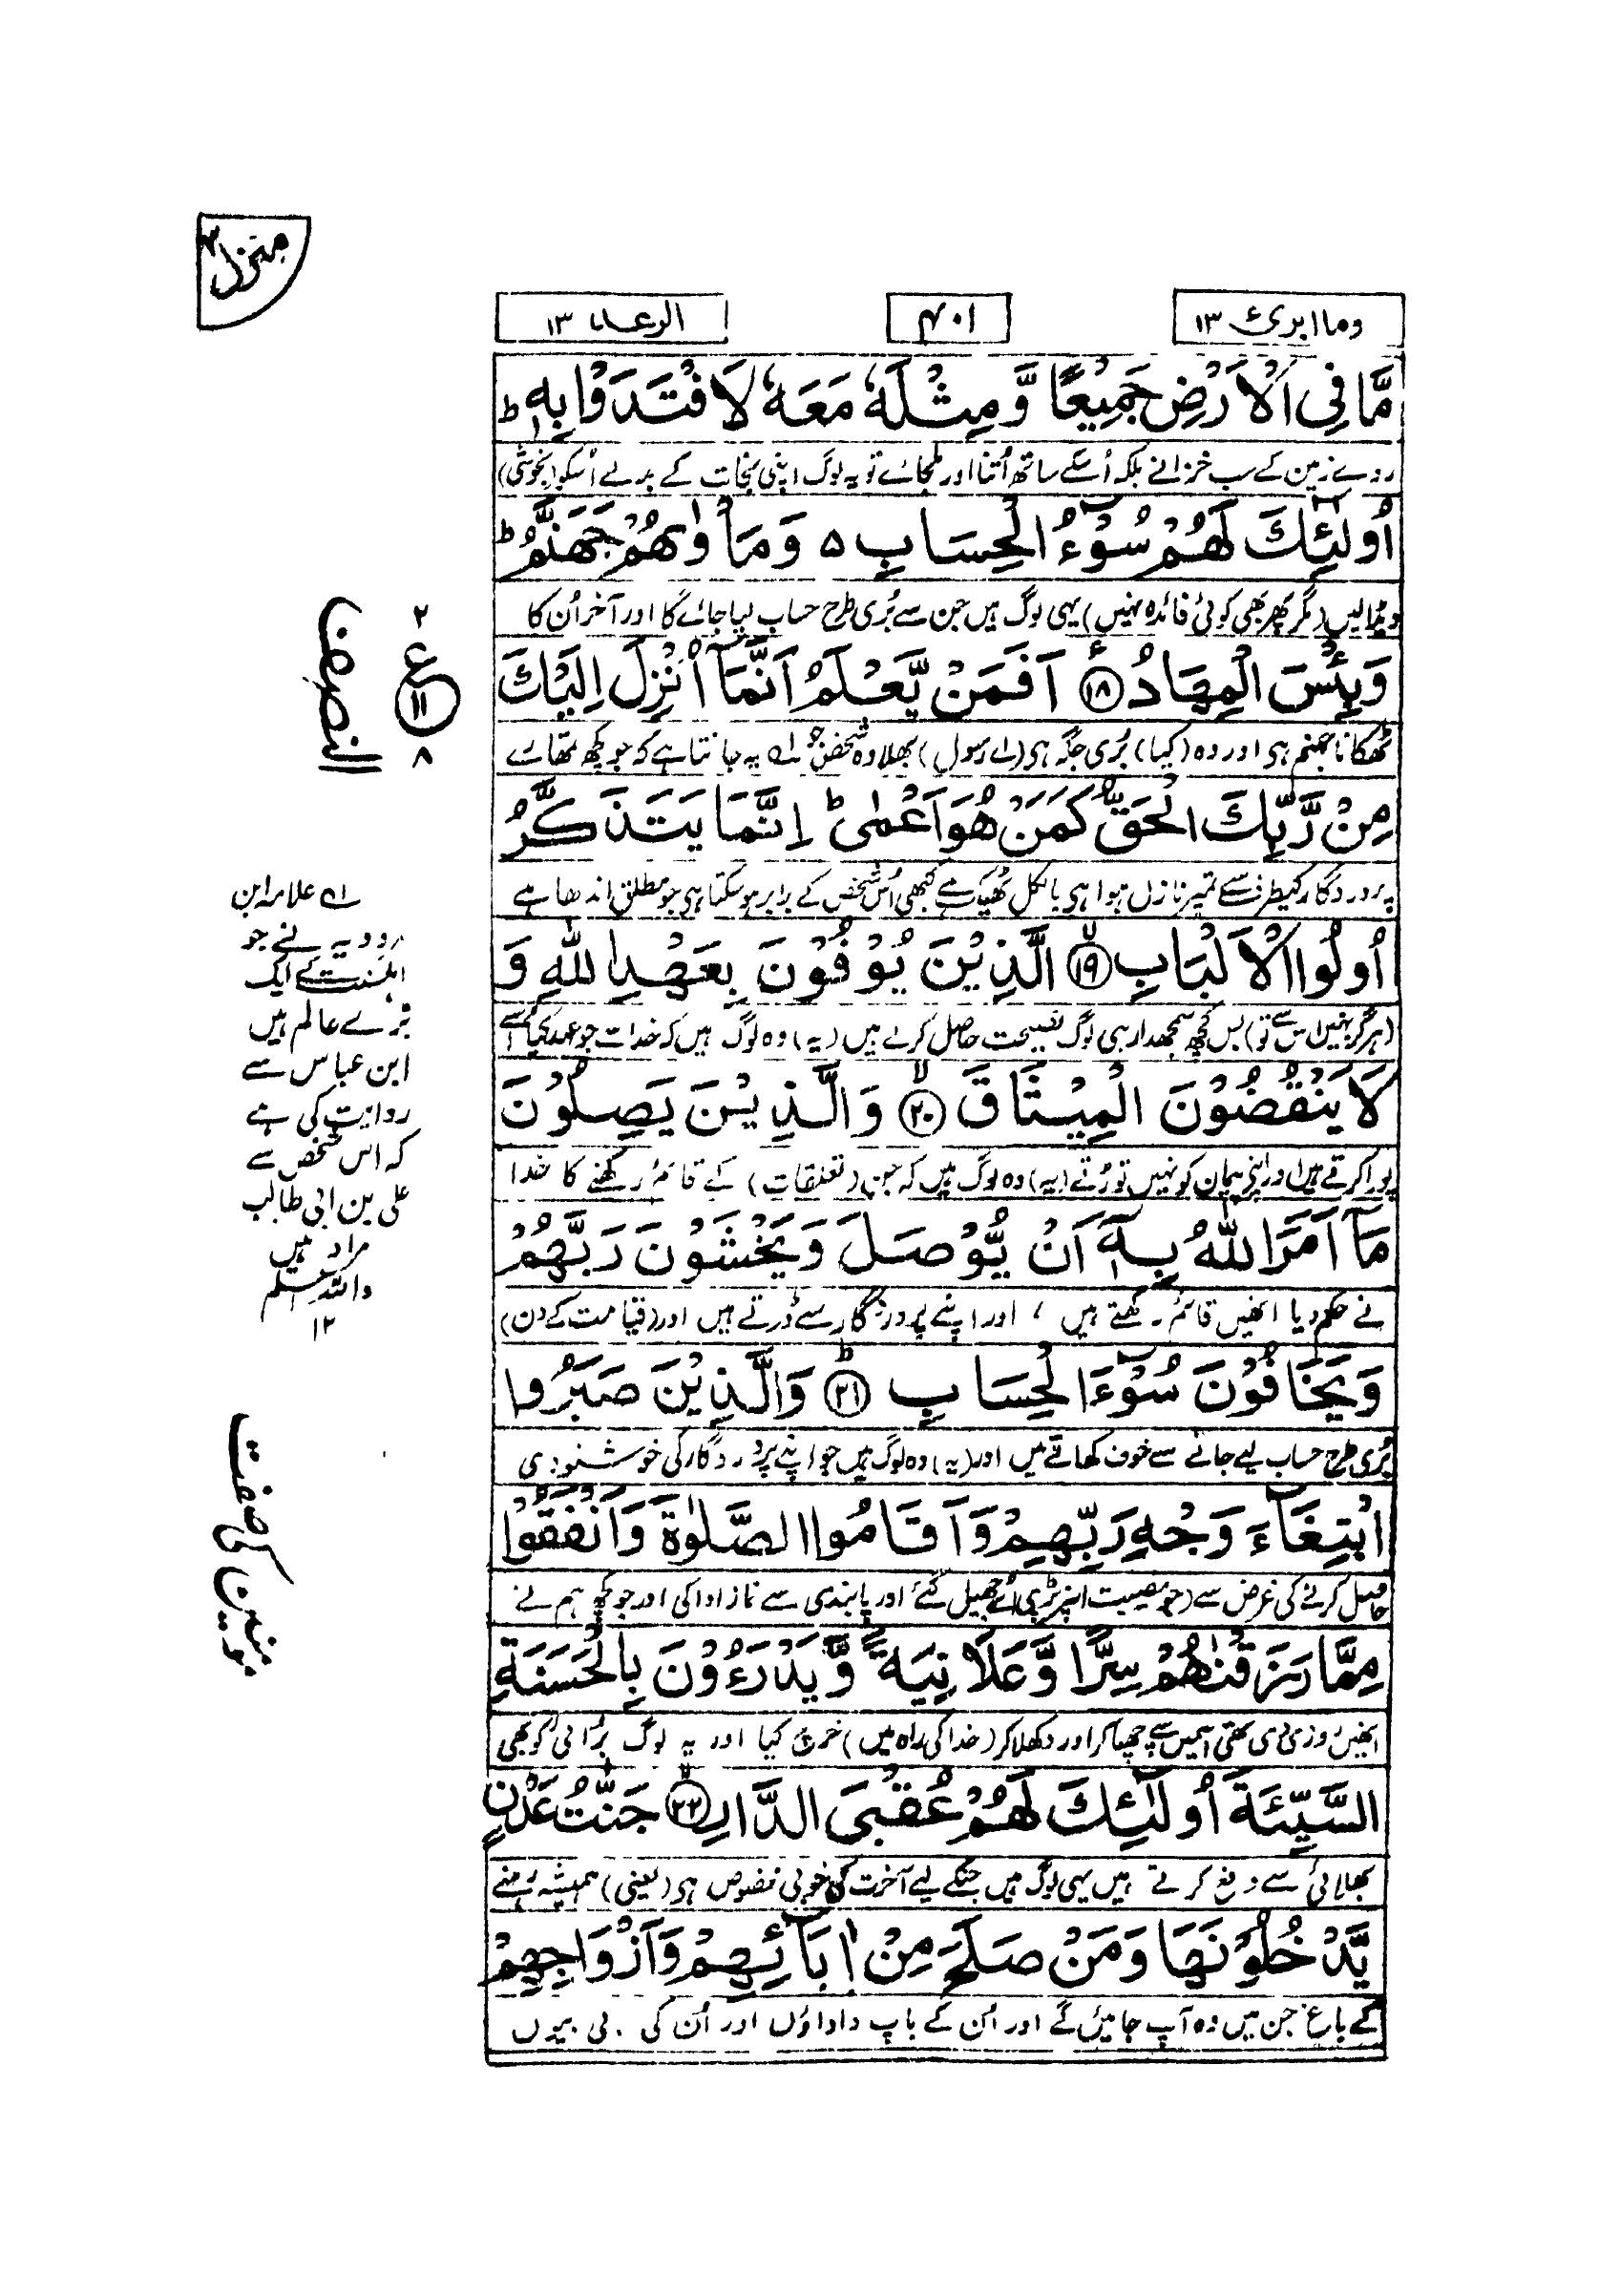 منزل ۳
وما ابرئ ۱۳
۴۰۱
الرعد ۱۳
مَّا فِى الْاَرْضِ جَمِيْعًا وَّمِثْلَهٗ مَعَهٗ لَافْتَدَوْا بِهٖ ؕ
روے زمین کے سب خزانے بلکہ اُسکے ساتھ اُتنا اور ملجائے تو یہ لوگ اپنی نجات کے بدلے اُسکو (بخوشی)
اُولٰٓئِكَ لَهُمْ سُوْٓءُ الْحِسَابِ ۵ وَمَاْوٰىهُمْ جَهَنَّمُ ؕ
دیڈالیں (مگر پھر بھی کوئی فائدہ نہیں) یہی لوگ ہیں جن سے بُری طرح حساب لیا جائےگا اور آخر اُن کا
وَبِئْسَ الْمِهَادُ ۱۸ اَفَمَنْ يَّعْلَمُ اَنَّمَآ اُنْزِلَ اِلَيْكَ
ٹھکانا جہنم ہی اور وہ (کیا) بُری جگہ ہی (اے رسول) بھلا وہ شخص جو ۱ یہ جانتا ہے کہ جو کچھ تمھارے
مِنْ رَّبِّكَ الْحَقُّ كَمَنْ هُوَ اَعْمٰى ؕ اِنَّمَا يَتَذَكَّرُ
پروردگار کیطرف سے تمپر نازل ہوا ہی بالکل ٹھیک ہے کبھی اُس شخص کے برابر ہو سکتا ہی جو مطلق اندھا ہے
اُولُوا الْاَلْبَابِ ۱۹ الَّذِيْنَ يُوْفُوْنَ بِعَهْدِ اللّٰهِ وَ
(ہرگز نہیں اس سے تو) بس کچھ سمجھدار ہی لوگ نصیحت حاصل کرتے ہیں (یہ) وہ لوگ ہیں کہ خدا سے جو عہد کیا اُسے
لَا يَنْقُضُوْنَ الْمِيْثَاقَ ۲۰ وَالَّذِيْنَ يَصِلُوْنَ
پورا کرتے ہیں اور اپنے پیمان کو نہیں توڑتے (یہ) وہ لوگ ہیں کہ جن (تعلقات) کے قائم رکھنے کا خدا
مَآ اَمَرَ اللّٰهُ بِهٖٓ اَنْ يُّوْصَلَ وَيَخْشَوْنَ رَبَّهُمْ
نے حکم دیا انھیں قائم رکھتے ہیں ، اور اپنے پروردگار سے ڈرتے ہیں اور (قیامت کے دن)
وَيَخَافُوْنَ سُوْٓءَ الْحِسَابِ ۲۱ وَالَّذِيْنَ صَبَرُوا
بُری طرح حساب لیے جانے سے خوف کھاتے ہیں اور (یہ) وہ لوگ ہیں جو اپنے پروردگار کی خوشنودی
ابْتِغَآءَ وَجْهِ رَبِّهِمْ وَاَقَامُوا الصَّلٰوةَ وَاَنْفَقُوْا
حاصل کرنے کی غرض سے (جو مصیبت انپر پڑی ہی اُسے) جھیل گئے اور پابندی سے نماز ادا کی اور جو کچھ ہم نے
مِمَّا رَزَقْنٰهُمْ سِرًّا وَّعَلَانِيَةً وَّيَدْرَءُوْنَ بِالْحَسَنَةِ
انھیں روزی دی تھی اسمیں سے چھپا کر اور دکھلا کر (خدا کی راہ میں) خرچ کیا اور یہ لوگ بُرائی کو بھی
السَّيِّئَةَ اُولٰٓئِكَ لَهُمْ عُقْبَى الدَّارِ ۲۲ جَنّٰتُ عَدْنٍ
بھلائی سے دفع کرتے ہیں یہی لوگ ہیں جنکے لیے آخرت کی خوبی مخصوص ہی (یعنی) ہمیشہ رہنے
يَّدْخُلُوْنَهَا وَمَنْ صَلَحَ مِنْ اٰبَآئِهِمْ وَاَزْوَاجِهِمْ
کے باغ جن میں وہ آپ جائیں گے اور اُن کے باپ داداؤں اور اُن کی بی بیوں
۲
ع
۱۱
۸
النصف
۱ علامہ ابن
مردویہ نے جو
اہلسنت کے ایک
بڑے عالم ہیں
ابن عباس سے
روایت کی ہے
کہ اس شخص سے
علی بن ابی طالب
مراد ہیں
واللہ اعلم
۱۲
مومنین کی صفت